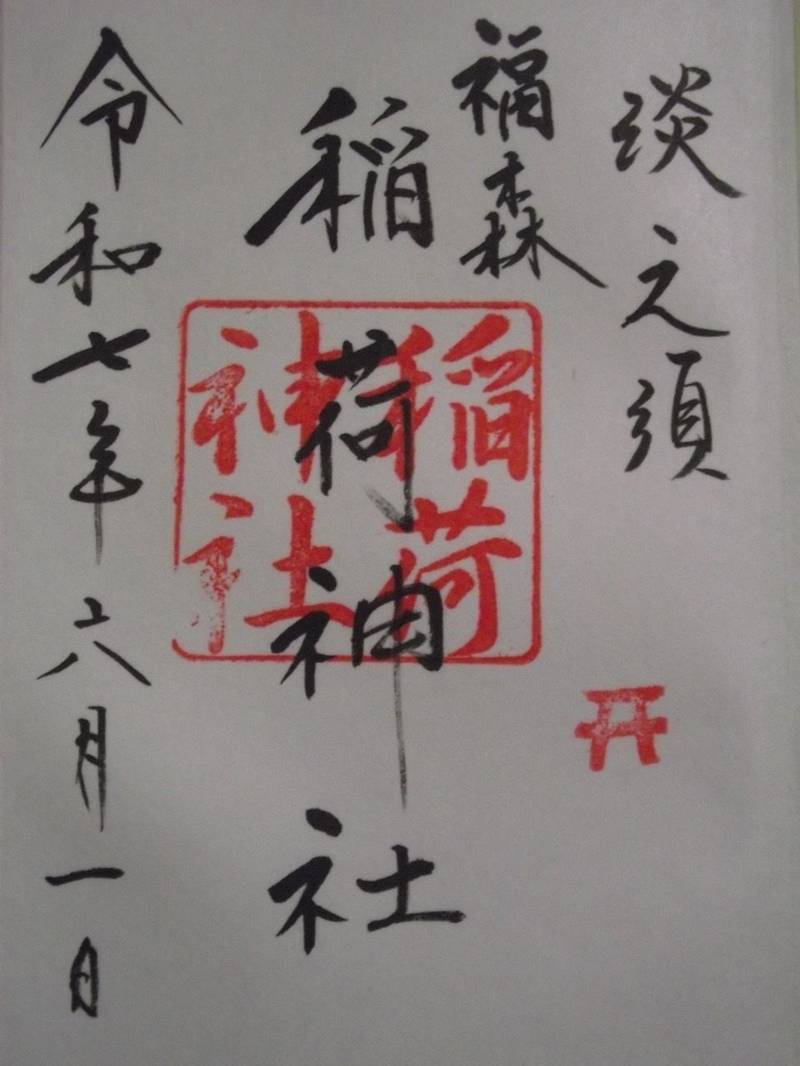 淡之須
福森
稲荷神社
稲荷神社
令和七年六月一日